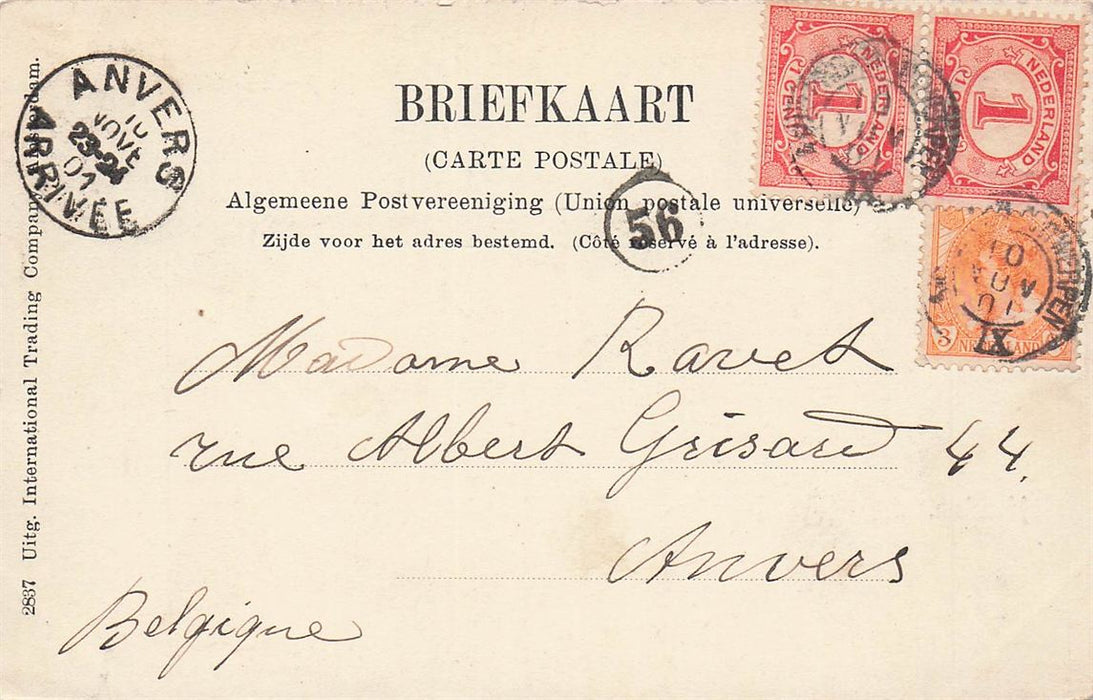 BRIEFKAART
(CARTE POSTALE)
Algemeene Postvereeniging (Union postale universelle)
Zijde voor het adres bestemd. (Côté réservé à l'adresse).
ANVERS
10
NOVE
23-24
07
ARRIVÉE
56
NEDERLAND
1
1 CENT
NEDERLAND
1
3 NEDERLAND
XI
Madame Ravet
rue Albert Grisard 44.
Anvers
Belgique
2837 Uitg. International Trading Company, Amsterdam.